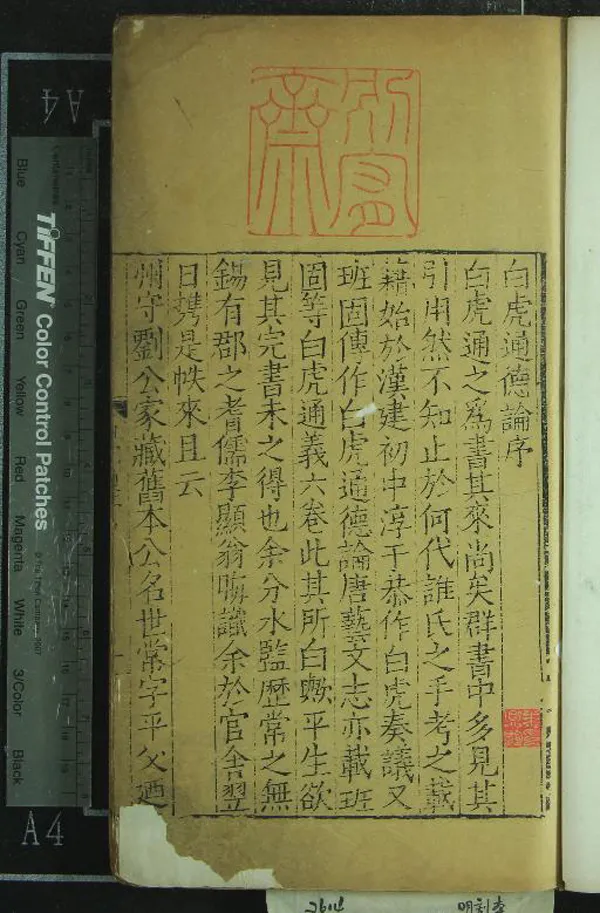 白虎通德論序
白虎通之爲書其來尚矣群書中多見其
引用然不知止於何代誰氏之手考之載
籍始於漢建初中淳于恭作白虎奏議又
班固傳作白虎通德論唐藝文志亦載班
固等白虎通義六卷此其所自歟平生欲
見其完書未之得也余分水監歷常之無
錫有郡之耆儒李顯翁晦識余於官舍翌
日攜是帙來且云
州守劉公家藏舊本公名世常字平父廼
A4
Blue
Cyan
Green
Yellow
Red
Magenta
White
3/Color
Black
TIFFEN Color Control Patches
A4
明刻本